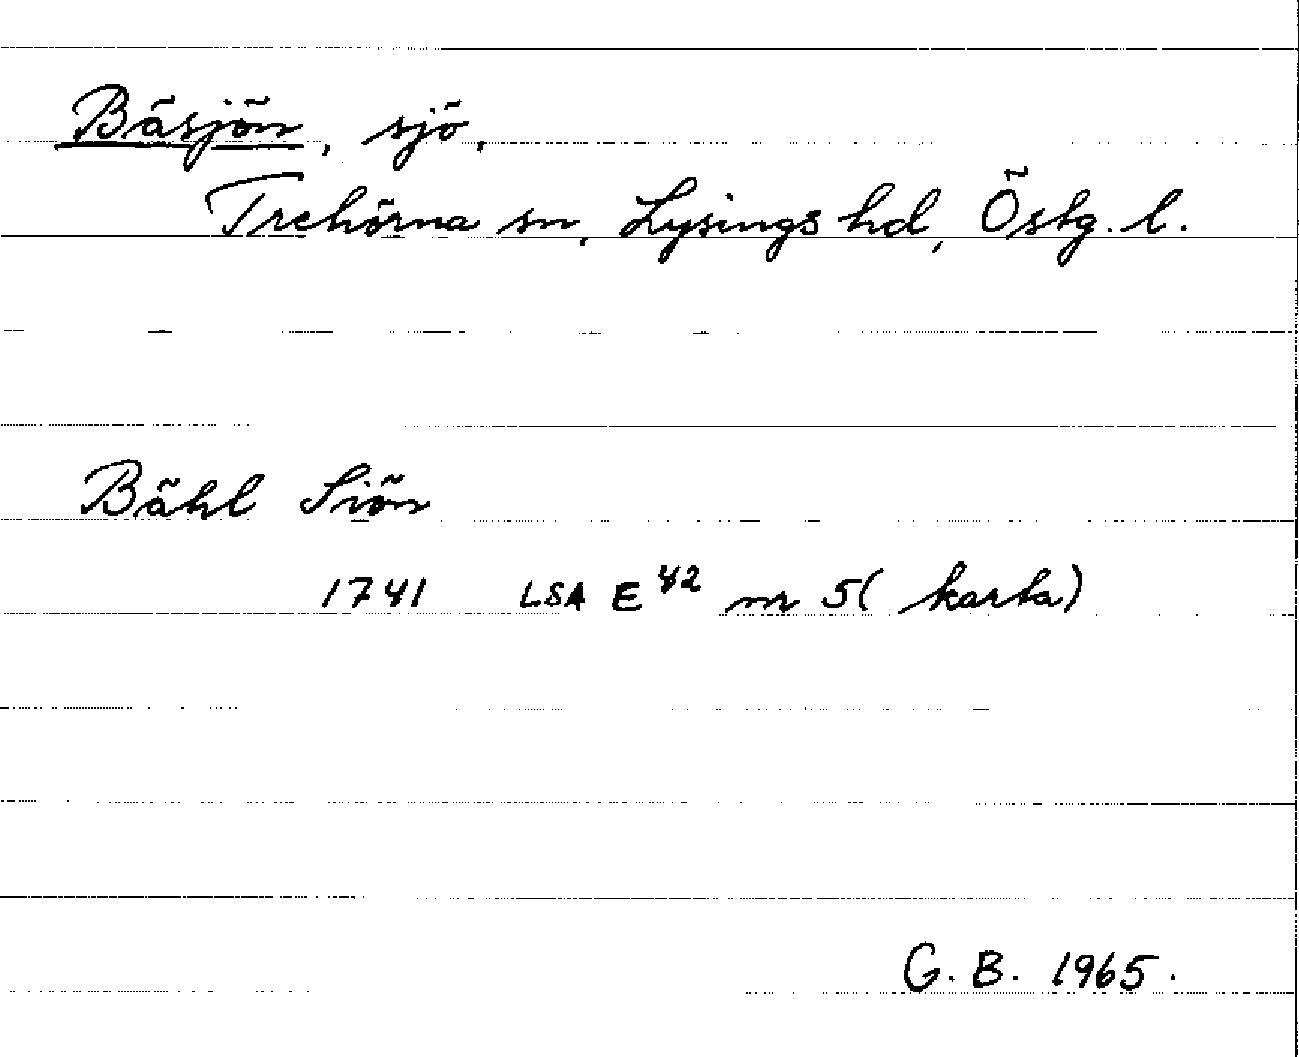 Bäsjön, sjö.
Trehörna sn, Lysings hd, Östg. l.
Bähl Siön
1741 LSA E 42 nr 5 (karta)
G. B. 1965.